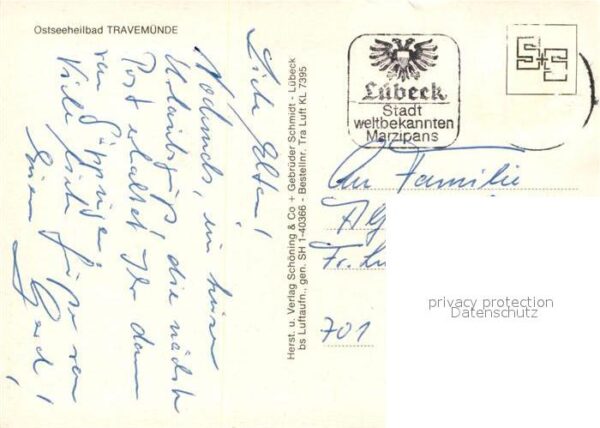 Ostseeheilbad TRAVEMÜNDE
Liebe Eltern!
Nochmals, ein kurzer
Urlaubsgruß, die nächste
Post erhaltet Ihr dann
von
Viele liebe Grüße von
Eurem Gerd!
Herst. u. Verlag Schöning & Co + Gebrüder Schmidt - Lübeck
bs Luftaufn., gen. SH 1-40366 - Bestellnr. Tra Luft KL 7395
Lübeck
Stadt
weltbekannten
Marzipans
S+2
An Familie
701
privacy protection
Datenschutz